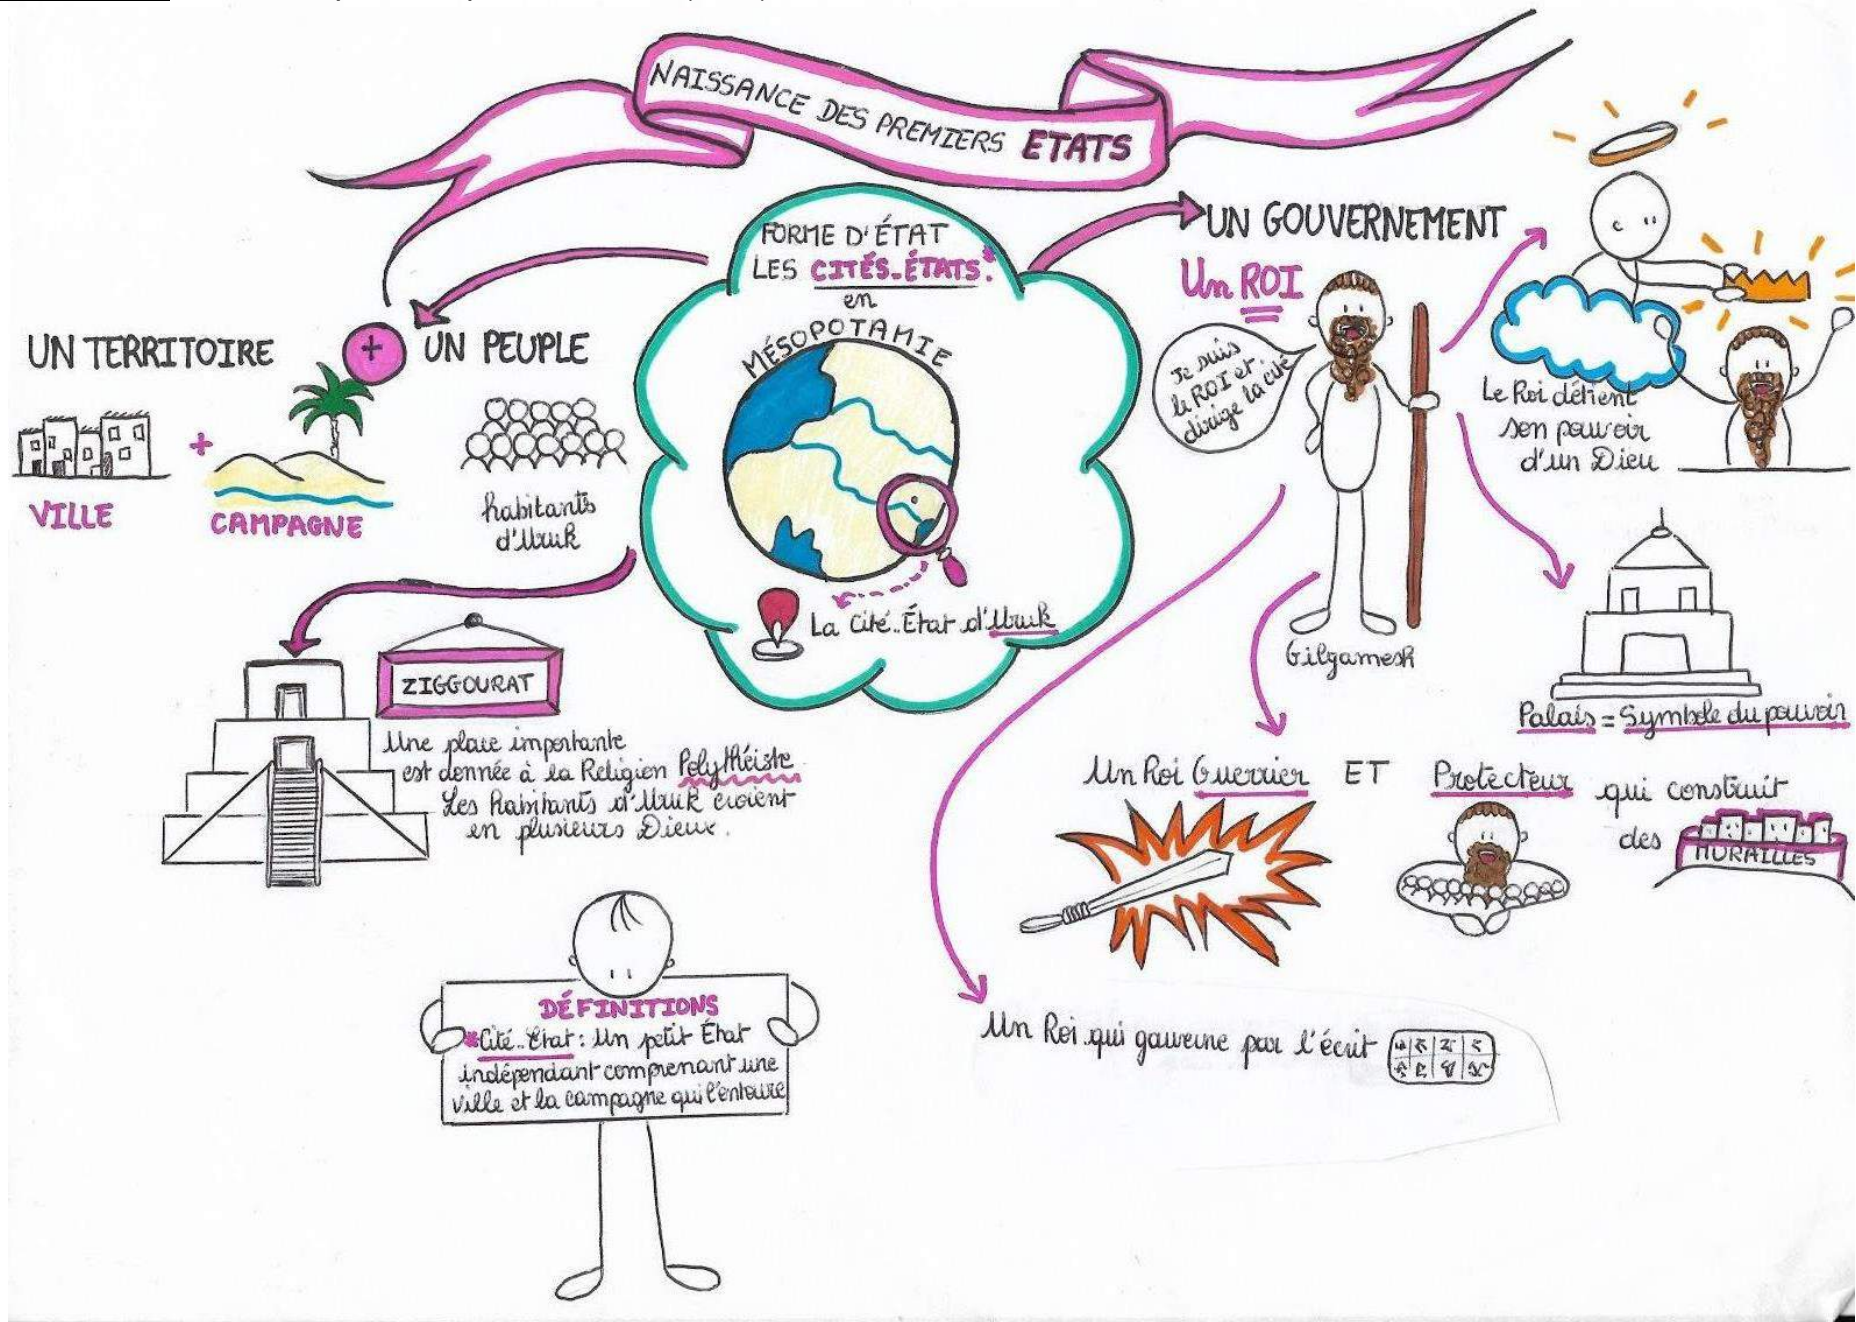 NAISSANCE DES PREMIERS ETATS
FORME D'ÉTAT
LES CITÉS-ÉTATS*
en
MÉSOPOTAMIE
La Cité-État d'Uruk
UN TERRITOIRE
+
UN PEUPLE
VILLE
+
CAMPAGNE
habitants
d'Uruk
ZIGGOURAT
Une place importante
est donnée à la Religion Polythéiste
Les habitants d'Uruk croient
en plusieurs Dieux.
DÉFINITIONS
*Cité-Etat : Un petit État
indépendant comprenant une
ville et la campagne qui l'entoure
UN GOUVERNEMENT
Un ROI
Je suis
le ROI et
dirige la cité
Gilgamesh
Le Roi détient
son pouvoir
d'un Dieu
Palais = Symbole du pouvoir
Un Roi Guerrier ET Protecteur qui construit
des MURAILLES
Un Roi qui gouverne par l'écrit